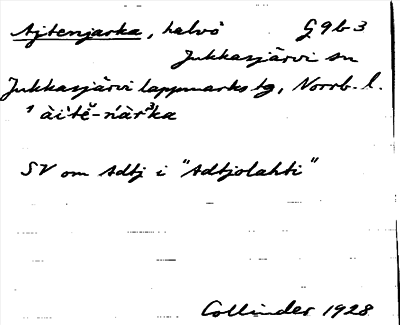 Ajtenjarka, halvö G9b3
Jukkasjärvi sn
Jukkasjärvi lappmarks tg, Norrb. l.
SV om Adtj i "Adtjolahti"
Collinder 1928